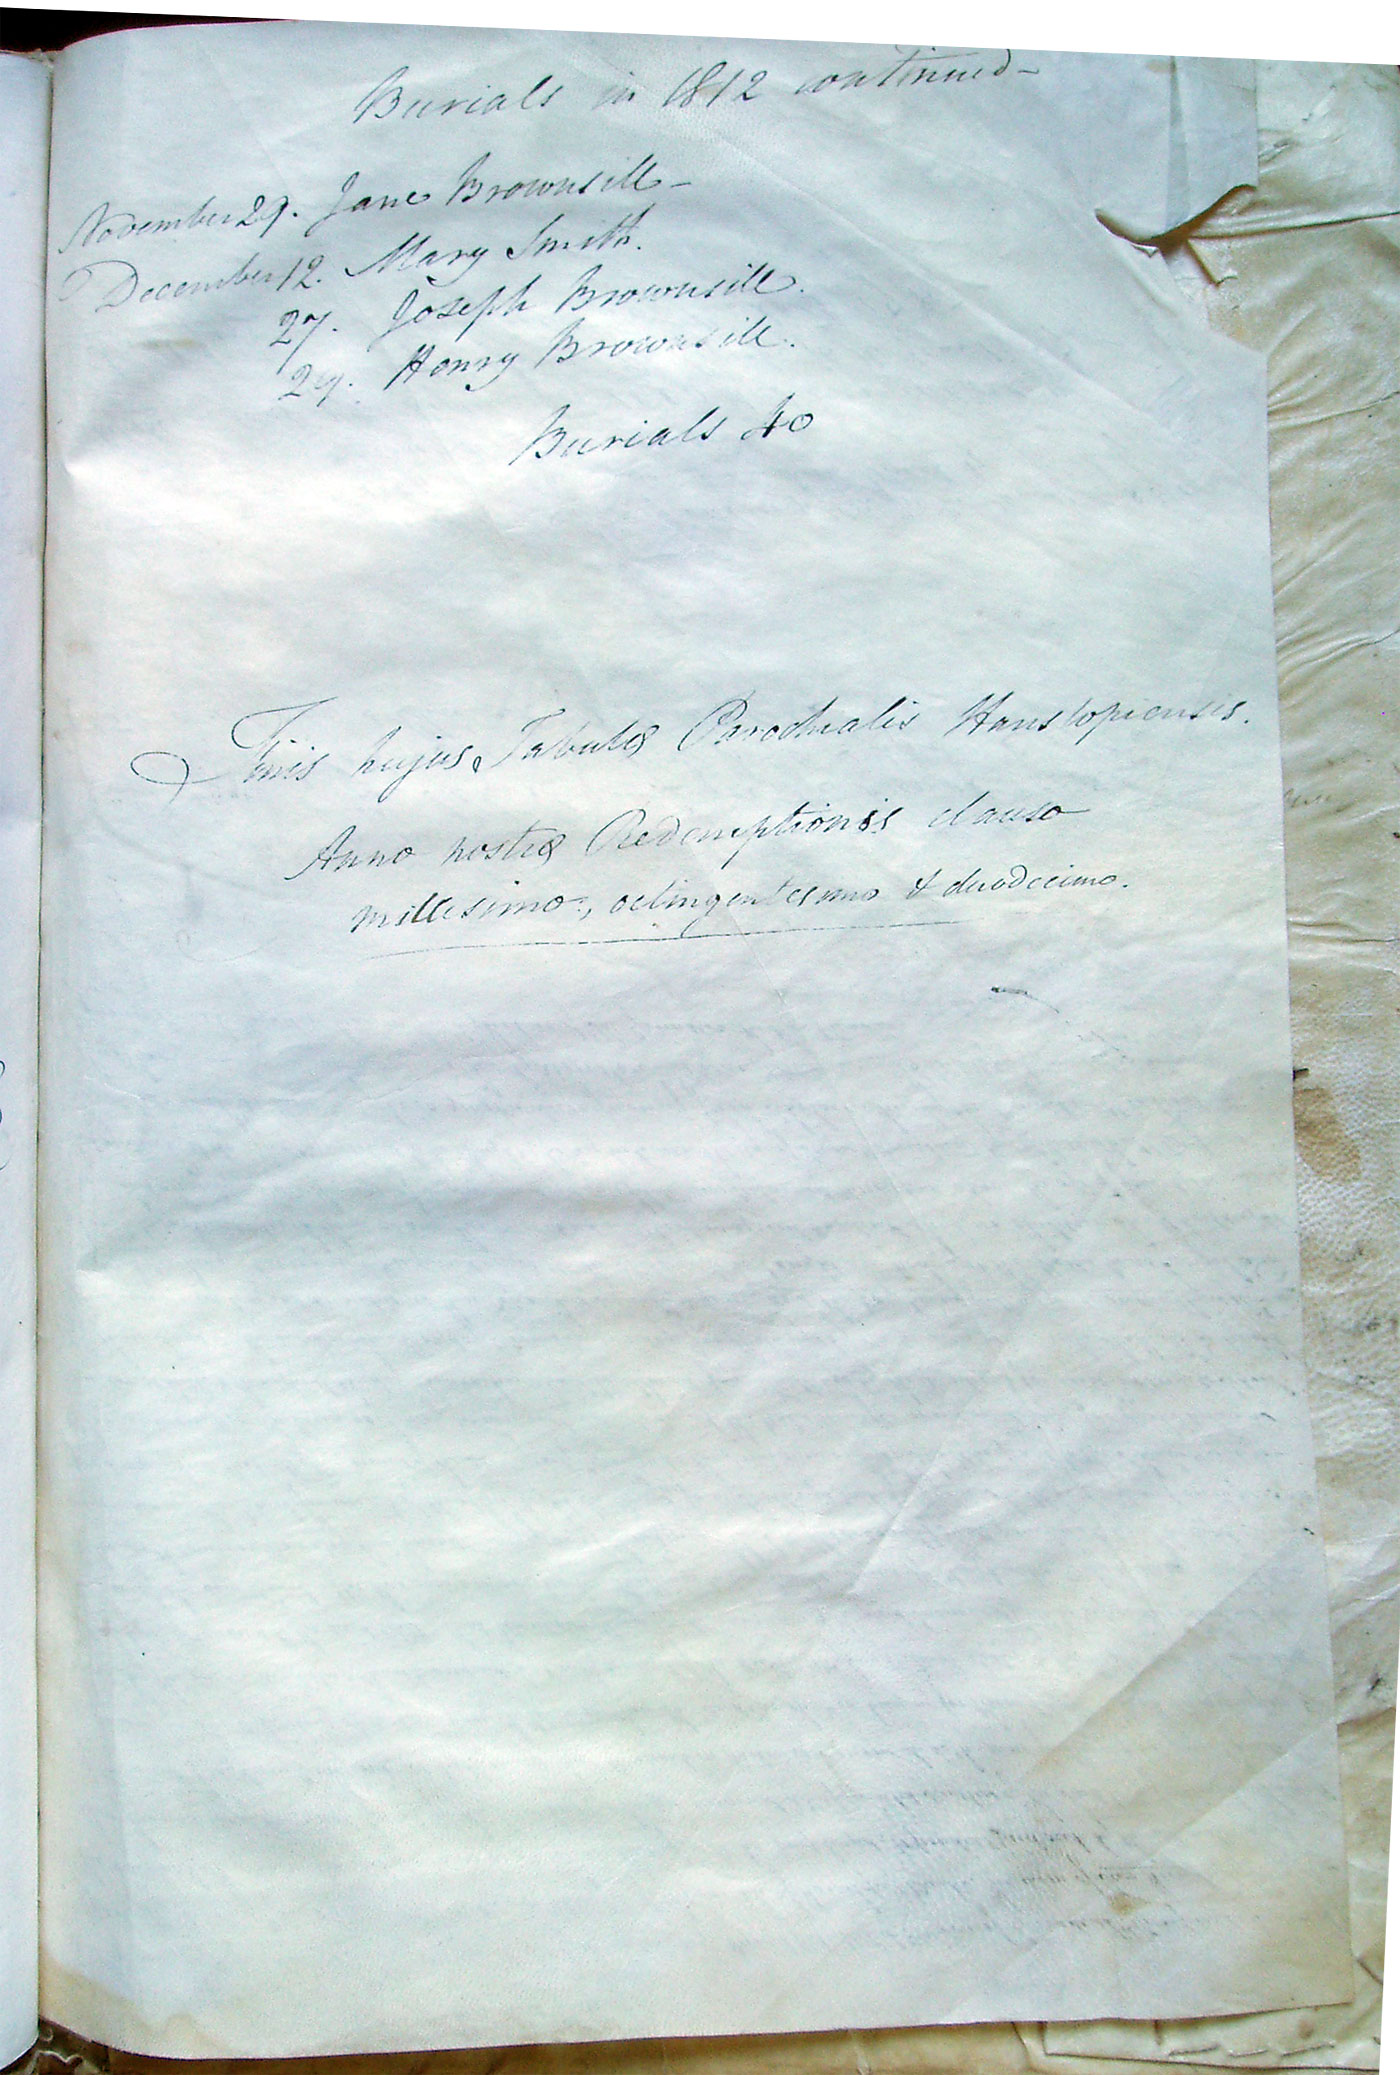 Burials in 1812 continued-
November 29. Jane Brownsill-
December 12. Mary Smith.
27. Joseph Brownsill.
29. Henry Brownsill.
Burials 40
Finis hujus Tabulæ Parochialis Hanslopiensis.
Anno nostræ Redemptionis clauso
millesimo, octingentesimo & duodecimo.